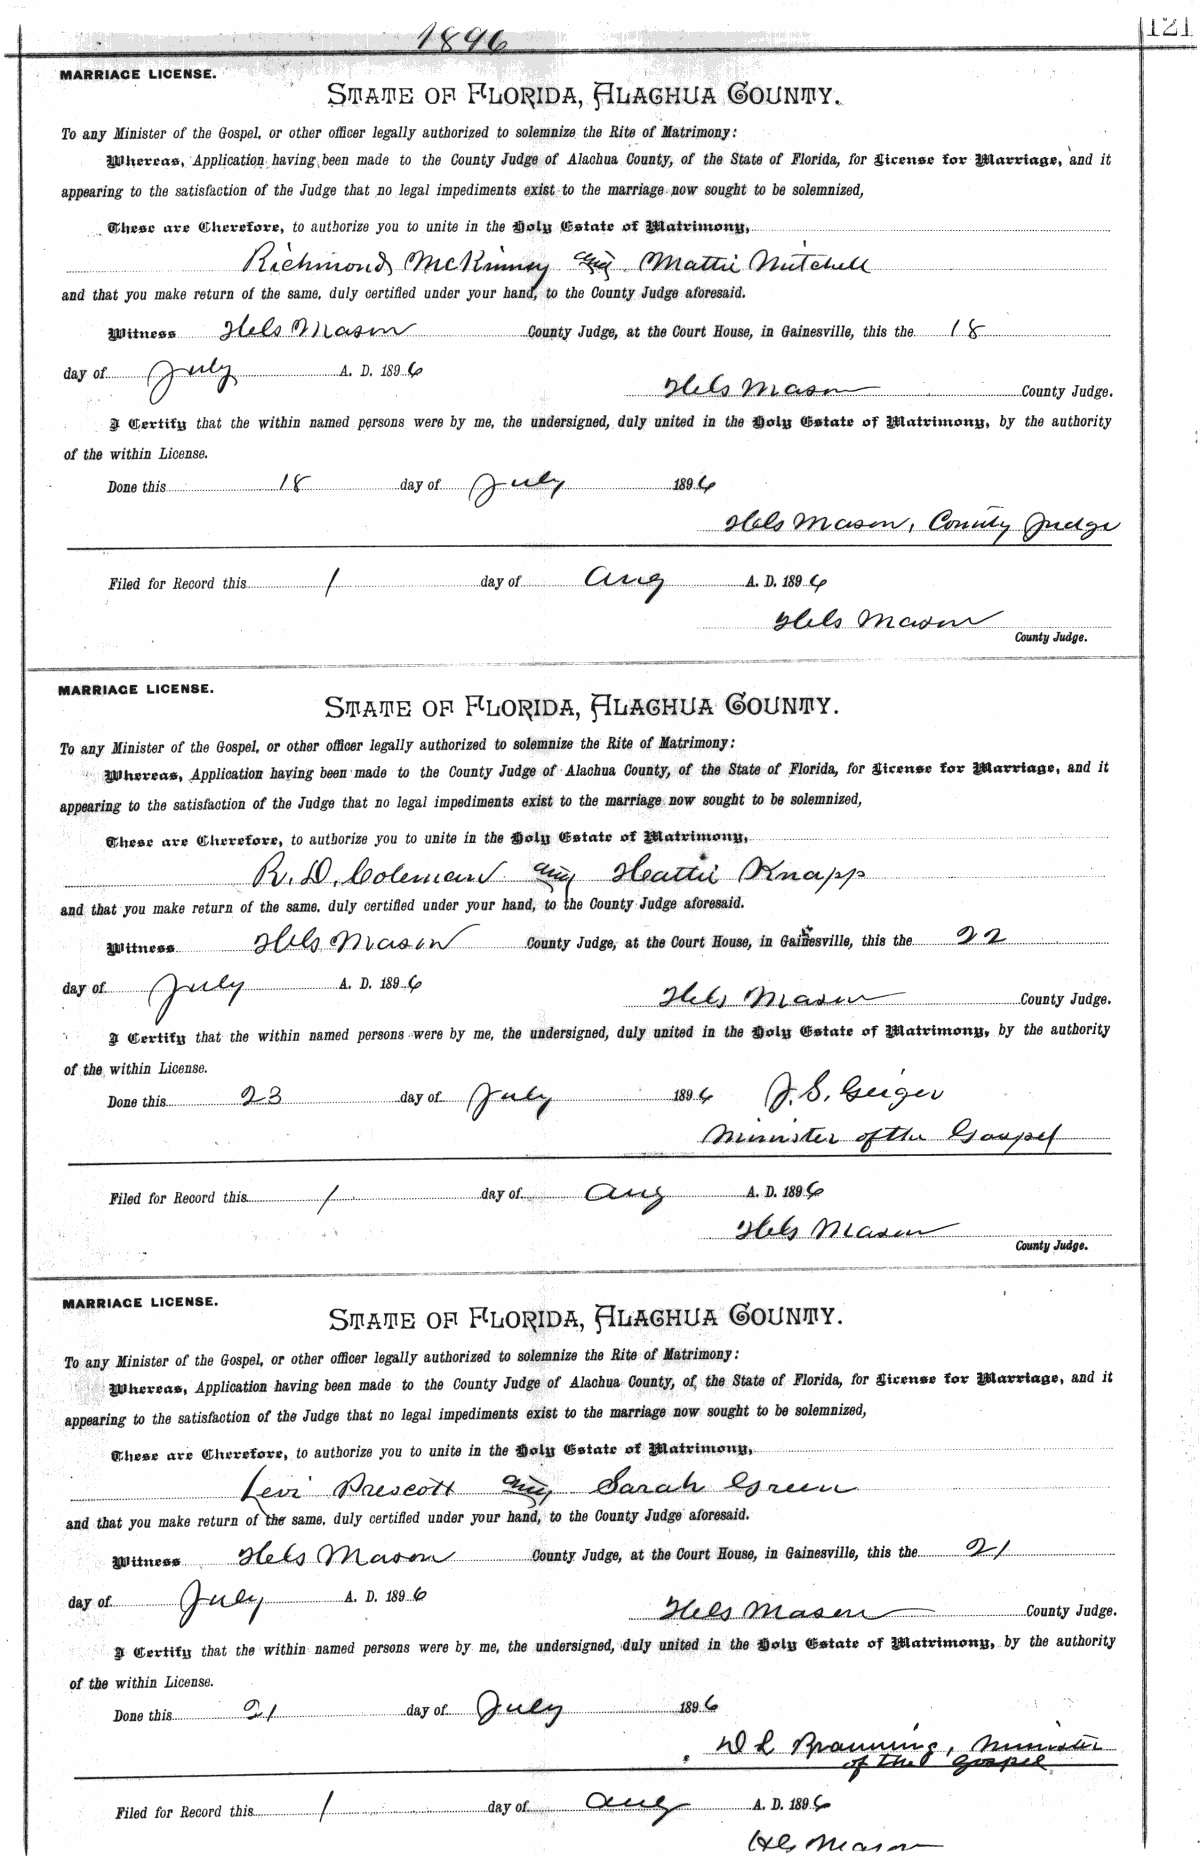 1896
121
MARRIAGE LICENSE.
STATE OF FLORIDA, ALACHUA COUNTY.
To any Minister of the Gospel, or other officer legally authorized to solemnize the Rite of Matrimony:
Whereas, Application having been made to the County Judge of Alachua County, of the State of Florida, for License for Marriage, and it
appearing to the satisfaction of the Judge that no legal impediments exist to the marriage now sought to be solemnized,
These are Therefore, to authorize you to unite in the Holy Estate of Matrimony,
Richmond McKinney and Mattie Mitchell
and that you make return of the same, duly certified under your hand, to the County Judge aforesaid.
Witness H Mason County Judge, at the Court House, in Gainesville, this the 18
day of July A. D. 1896
H Mason County Judge.
I Certify that the within named persons were by me, the undersigned, duly united in the Holy Estate of Matrimony, by the authority
of the within License.
Done this 18 day of July 1896
Mason, County Judge
Filed for Record this 1 day of Aug A. D. 1896
Mason
County Judge.
MARRIAGE LICENSE.
STATE OF FLORIDA, ALACHUA COUNTY.
To any Minister of the Gospel, or other officer legally authorized to solemnize the Rite of Matrimony:
Whereas, Application having been made to the County Judge of Alachua County, of the State of Florida, for License for Marriage, and it
appearing to the satisfaction of the Judge that no legal impediments exist to the marriage now sought to be solemnized,
These are Therefore, to authorize you to unite in the Holy Estate of Matrimony,
R. D. Coleman and Hattie Knapp
and that you make return of the same, duly certified under your hand, to the County Judge aforesaid.
Witness Mason County Judge, at the Court House, in Gainesville, this the 22
day of July A. D. 1896
Mason County Judge.
I Certify that the within named persons were by me, the undersigned, duly united in the Holy Estate of Matrimony, by the authority
of the within License.
Done this 23 day of July 1896 J. S. Geiger
Minister of the Gospel
Filed for Record this 1 day of Aug A. D. 1896
Mason
County Judge.
MARRIAGE LICENSE.
STATE OF FLORIDA, ALACHUA COUNTY.
To any Minister of the Gospel, or other officer legally authorized to solemnize the Rite of Matrimony:
Whereas, Application having been made to the County Judge of Alachua County, of the State of Florida, for License for Marriage, and it
appearing to the satisfaction of the Judge that no legal impediments exist to the marriage now sought to be solemnized,
These are Therefore, to authorize you to unite in the Holy Estate of Matrimony,
Levi Prescott and Sarah Green
and that you make return of the same, duly certified under your hand, to the County Judge aforesaid.
Witness Mason County Judge, at the Court House, in Gainesville, this the 21
day of July A. D. 1896
Mason County Judge.
I Certify that the within named persons were by me, the undersigned, duly united in the Holy Estate of Matrimony, by the authority
of the within License.
Done this 21 day of July 1896
W L Branning, Minister
of the Gospel
Filed for Record this 1 day of Aug A. D. 1896
Mason